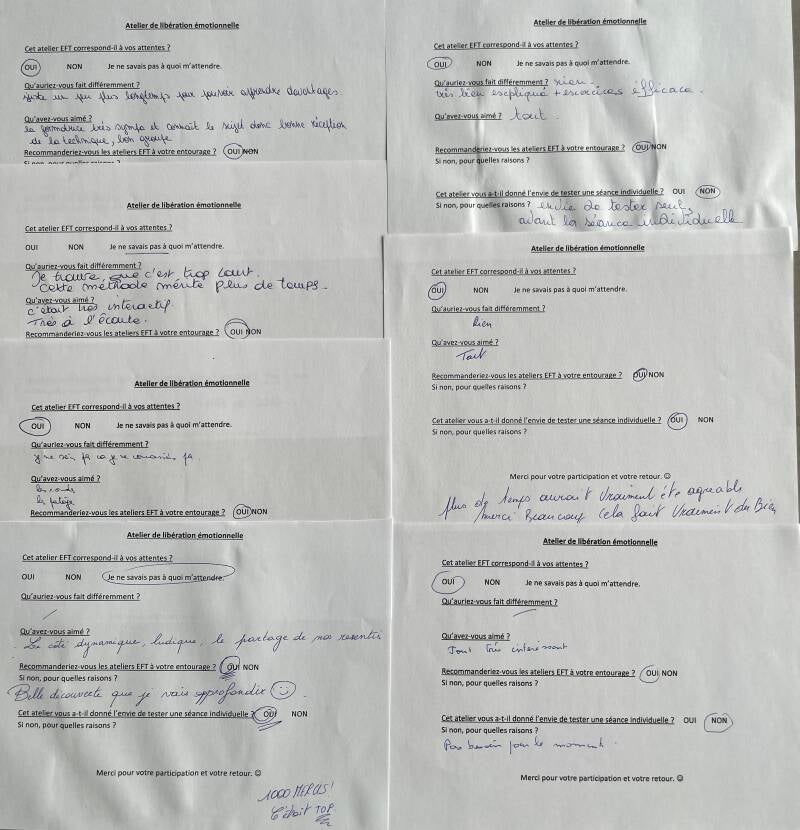 Atelier de libération émotionnelle
Cet atelier EFT correspond-il à vos attentes ?
OUI NON Je ne savais pas à quoi m'attendre.
Qu'auriez-vous fait différemment ?
juste un peu plus longtemps pour pouvoir apprendre davantages
Qu'avez-vous aimé ?
la formatrice très sympa et connait le sujet donc bonne réception
de la technique, bon groupe
Recommanderiez-vous les ateliers EFT à votre entourage ? OUI NON
Si non, pour quelles raisons ?
Atelier de libération émotionnelle
Cet atelier EFT correspond-il à vos attentes ?
OUI NON Je ne savais pas à quoi m'attendre.
Qu'auriez-vous fait différemment ?
Je trouve, que c'est trop court.
cette méthode mérite plus de temps.
Qu'avez-vous aimé ?
c'était très interactif.
Très à l'écoute.
Recommanderiez-vous les ateliers EFT à votre entourage ? OUI NON
Atelier de libération émotionnelle
Cet atelier EFT correspond-il à vos attentes ?
OUI NON Je ne savais pas à quoi m'attendre.
Qu'auriez-vous fait différemment ?
je ne
Qu'avez-vous aimé ?
Recommanderiez-vous les ateliers EFT à votre entourage ? OUI NON
Atelier de libération émotionnelle
Cet atelier EFT correspond-il à vos attentes ?
OUI NON Je ne savais pas à quoi m'attendre.
Qu'auriez-vous fait différemment ?
Qu'avez-vous aimé ?
Le côté dynamique, ludique, le partage de nos ressentis
Recommanderiez-vous les ateliers EFT à votre entourage ? OUI NON
Si non, pour quelles raisons ?
Belle découverte que je vais approfondir ☺
Cet atelier vous a-t-il donné l'envie de tester une séance individuelle ? OUI NON
Si non, pour quelles raisons ?
Merci pour votre participation et votre retour. ☺
1000 MERCIS !
C'était TOP
Atelier de libération émotionnelle
Cet atelier EFT correspond-il à vos attentes ?
OUI NON Je ne savais pas à quoi m'attendre.
Qu'auriez-vous fait différemment ? rien.
très bien escpliqué + escercices efficace.
Qu'avez-vous aimé ? tout.
Recommanderiez-vous les ateliers EFT à votre entourage ? OUI NON
Si non, pour quelles raisons ?
Cet atelier vous a-t-il donné l'envie de tester une séance individuelle ? OUI NON
Si non, pour quelles raisons ? envie de tester seul,
avant la séance individuelle
Atelier de libération émotionnelle
Cet atelier EFT correspond-il à vos attentes ?
OUI NON Je ne savais pas à quoi m'attendre.
Qu'auriez-vous fait différemment
Rien
Qu'avez-vous aimé?
Tout
Recommanderiez-vous les ateliers EFT à votre entourage ? OUI NON
Si non, pour quelles raisons ?
Cet atelier vous a-t-il donné l'envie de tester une séance individuelle ? OUI NON
Si non, pour quelles raisons ?
Merci pour votre participation et votre retour. ☺
plus de temps aurait vraiment été agréable
merci Beaucoup cela fait vraiment du Bien
Atelier de libération émotionnelle
Cet atelier EFT correspond-il à vos attentes ?
OUI NON Je ne savais pas à quoi m'attendre.
Qu'auriez-vous fait différemment ?
Qu'avez-vous aimé ?
Tout très intéressant
Recommanderiez-vous les ateliers EFT à votre entourage ? OUI NON
Si non, pour quelles raisons ?
Cet atelier vous a-t-il donné l'envie de tester une séance individuelle ? OUI NON
Si non, pour quelles raisons ?
Pas besoin pour le moment.
Merci pour votre participation et votre retour. ☺